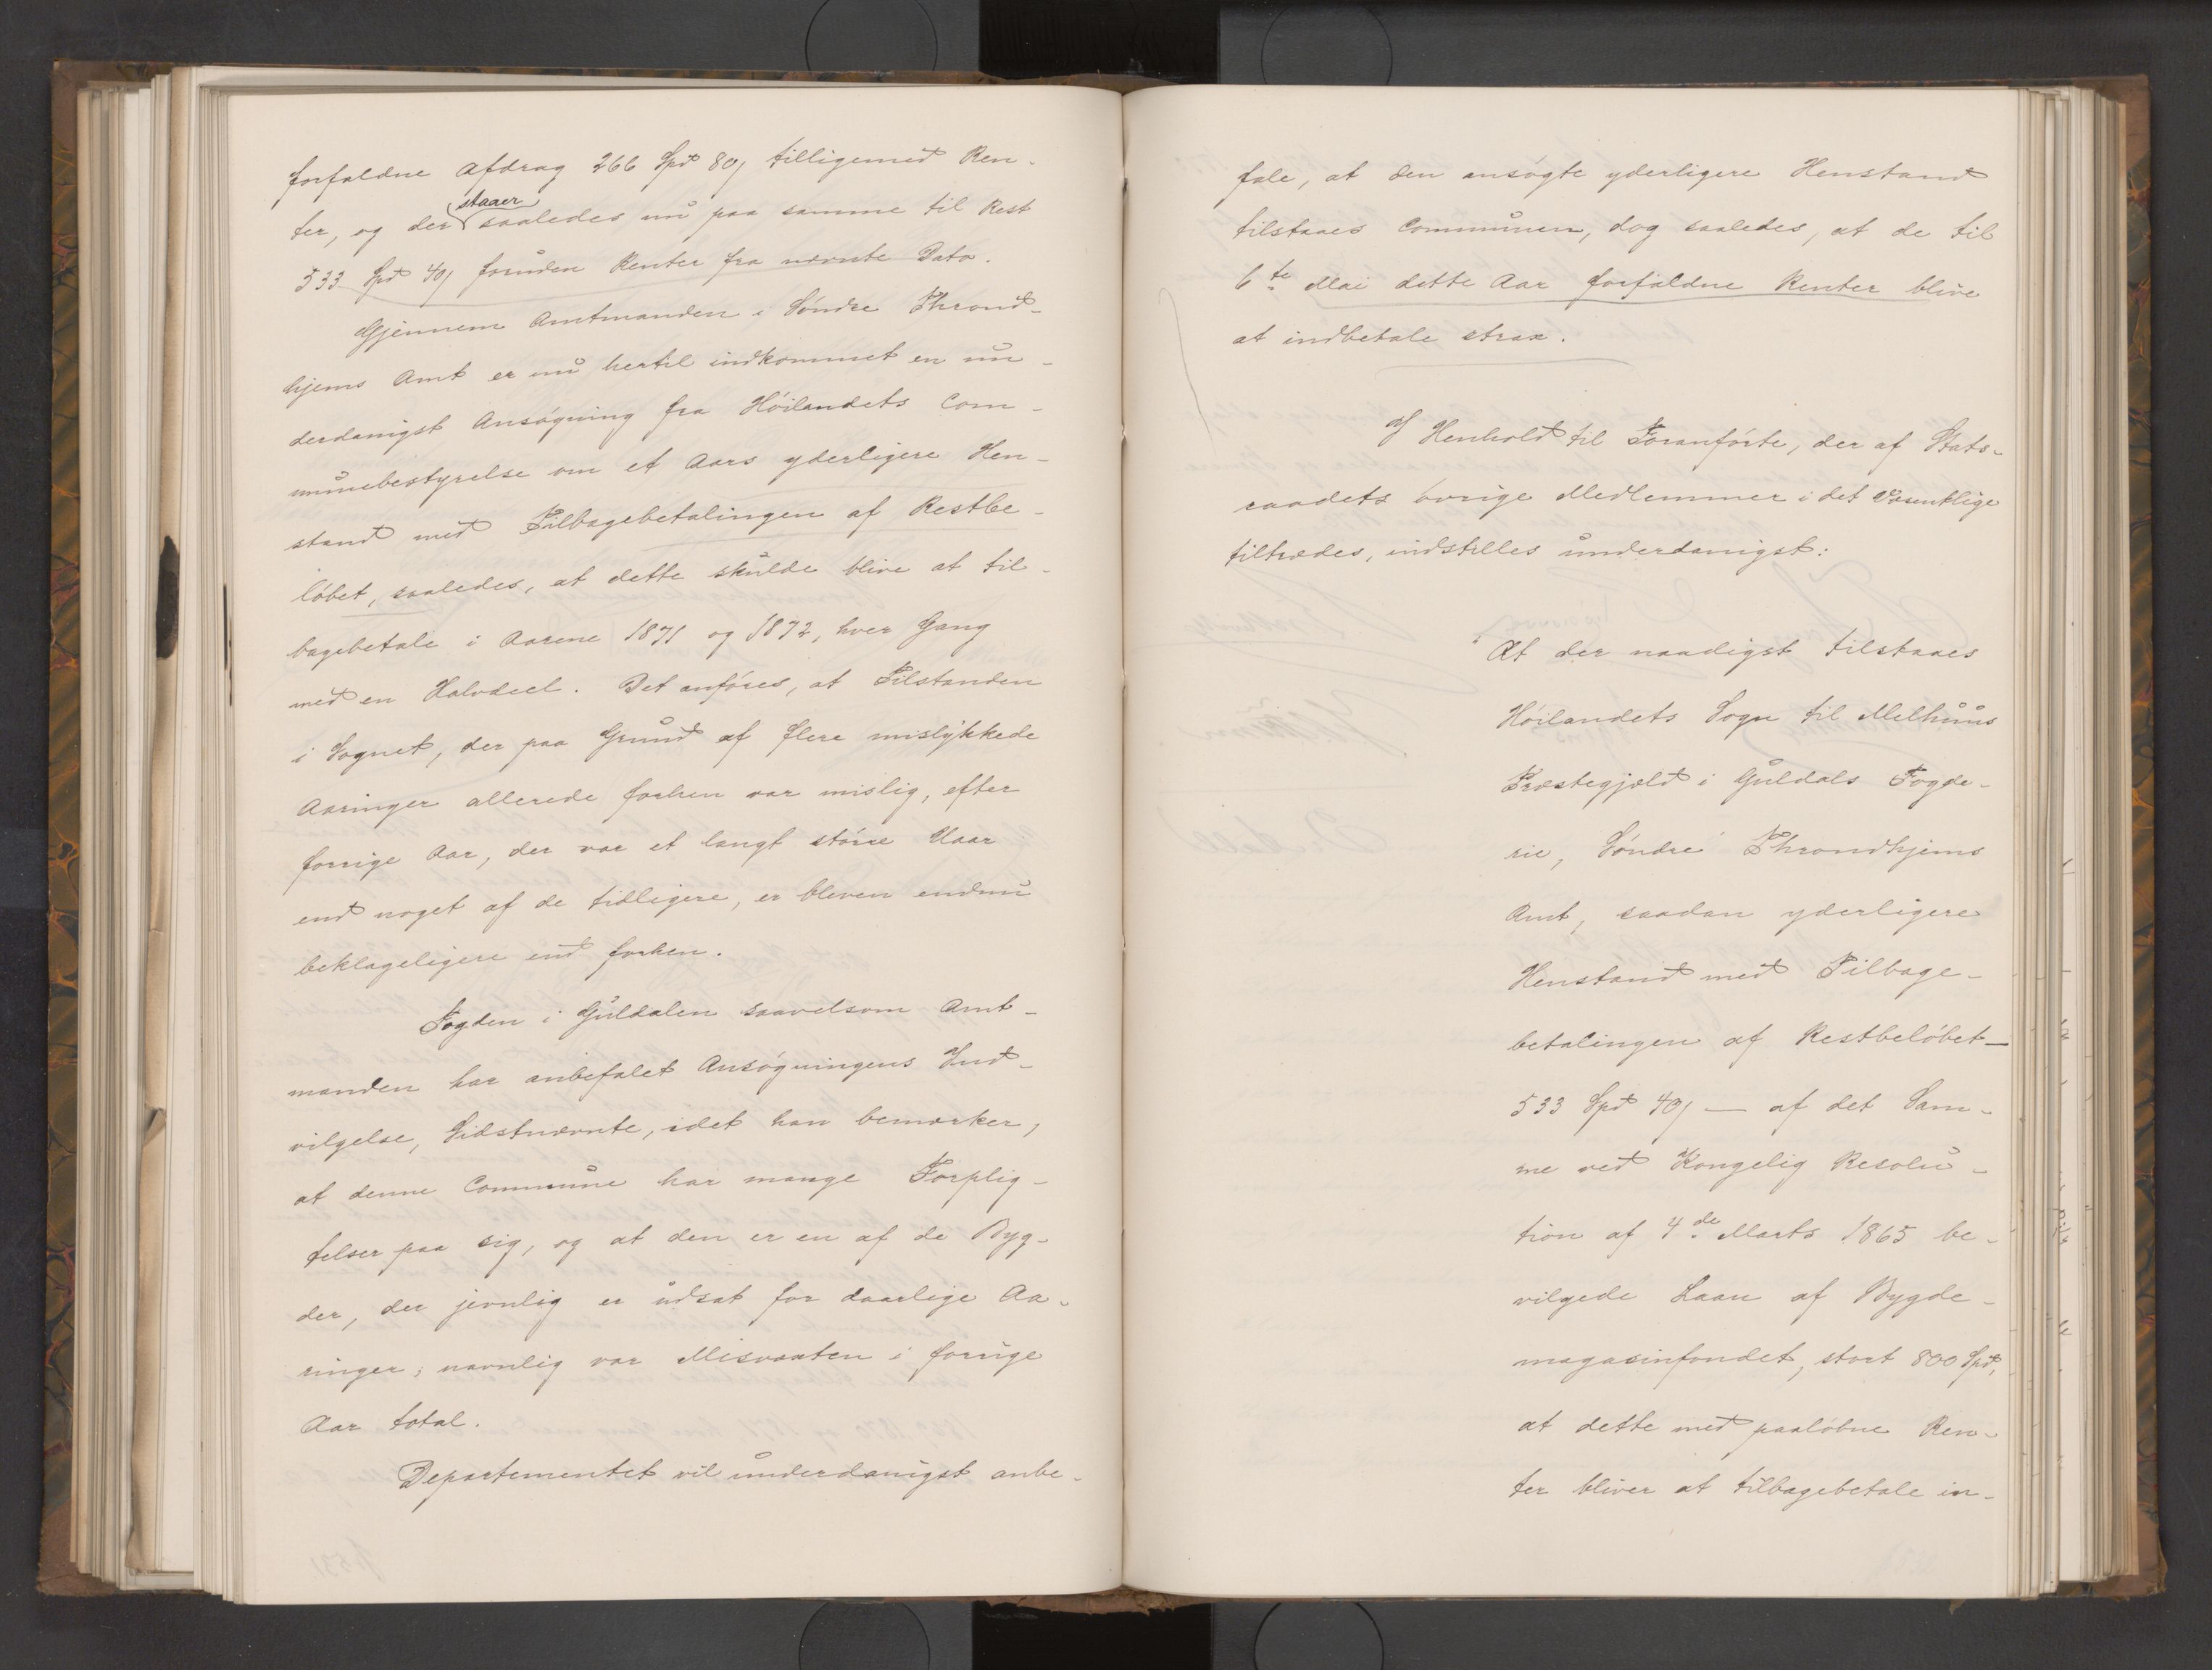 forfaldne Afdrag 266 Spd 80 ß tilligemed Ren-
staaer
ter, og der saaledes nu paa samme til Rest
533 Spd 40 ß foruden Renter fra nævnte Dato.
Gjennem Amtmanden i Søndre Thrond-
hjems Amt er nu hertil indkommet en un-
derdanigst Ansøgning fra Høilandets Com-
munebestyrelse om et Aars yderligere Hen-
stand med Tilbagebetalingen af Restbe-
løbet, saaledes, at dette skulde blive at til-
bagebetale i Aarene 1871 og 1872, hver Gang
med en Halvdeel. Det anføres, at Tilstanden
i Sognet, der paa Grund af flere mislykkede
Aaringer allerede forhen var mislig, efter
forrige Aar, der var et langt større Uaar
end noget af de tidligere, er bleven endnu
beklageligere end forhen.
Fogden i Guldalen saavelsom Amt-
manden har anbefalet Ansøgningens Ind-
vilgelse, Sidstnævnte, idet han bemærker,
at denne Commune har mange Forplig-
telser paa sig, og at den er en af de Byg-
der, der jevnlig er udsat for daarlige Aa-
ringer; navnlig var Misvæxten i forrige
Aar total.
Departementet vil underdanigst anbe-
fale, at den ansøgte yderligere Henstand
tilstaaes Communen, dog saaledes, at de til
6te Mai dette Aar forfaldne Renter blive
at indbetale strax.
I Henhold til Foranførte, der af Stats-
raadets øvrige Medlemmer i det Væsentlige
tiltrædes, indstilles underdanigst:
At der naadigst tilstaaes
Høilandets Sogn til Melhuus
Præstegjeld i Guldals Fogde-
rie, Søndre Throndhjems
Amt, saadan yderligere
Henstand med Tilbage-
betalingen af Restbeløbet —
533 Spd 40 ß — af det Sam-
me ved Kongelig Resolu-
tion af 4de Marts 1865 be-
vilgede Laan af Bygde-
magasinfondet, stort 800 Spd,
at dette med paaløbne Ren-
ter bliver at tilbagebetale in-